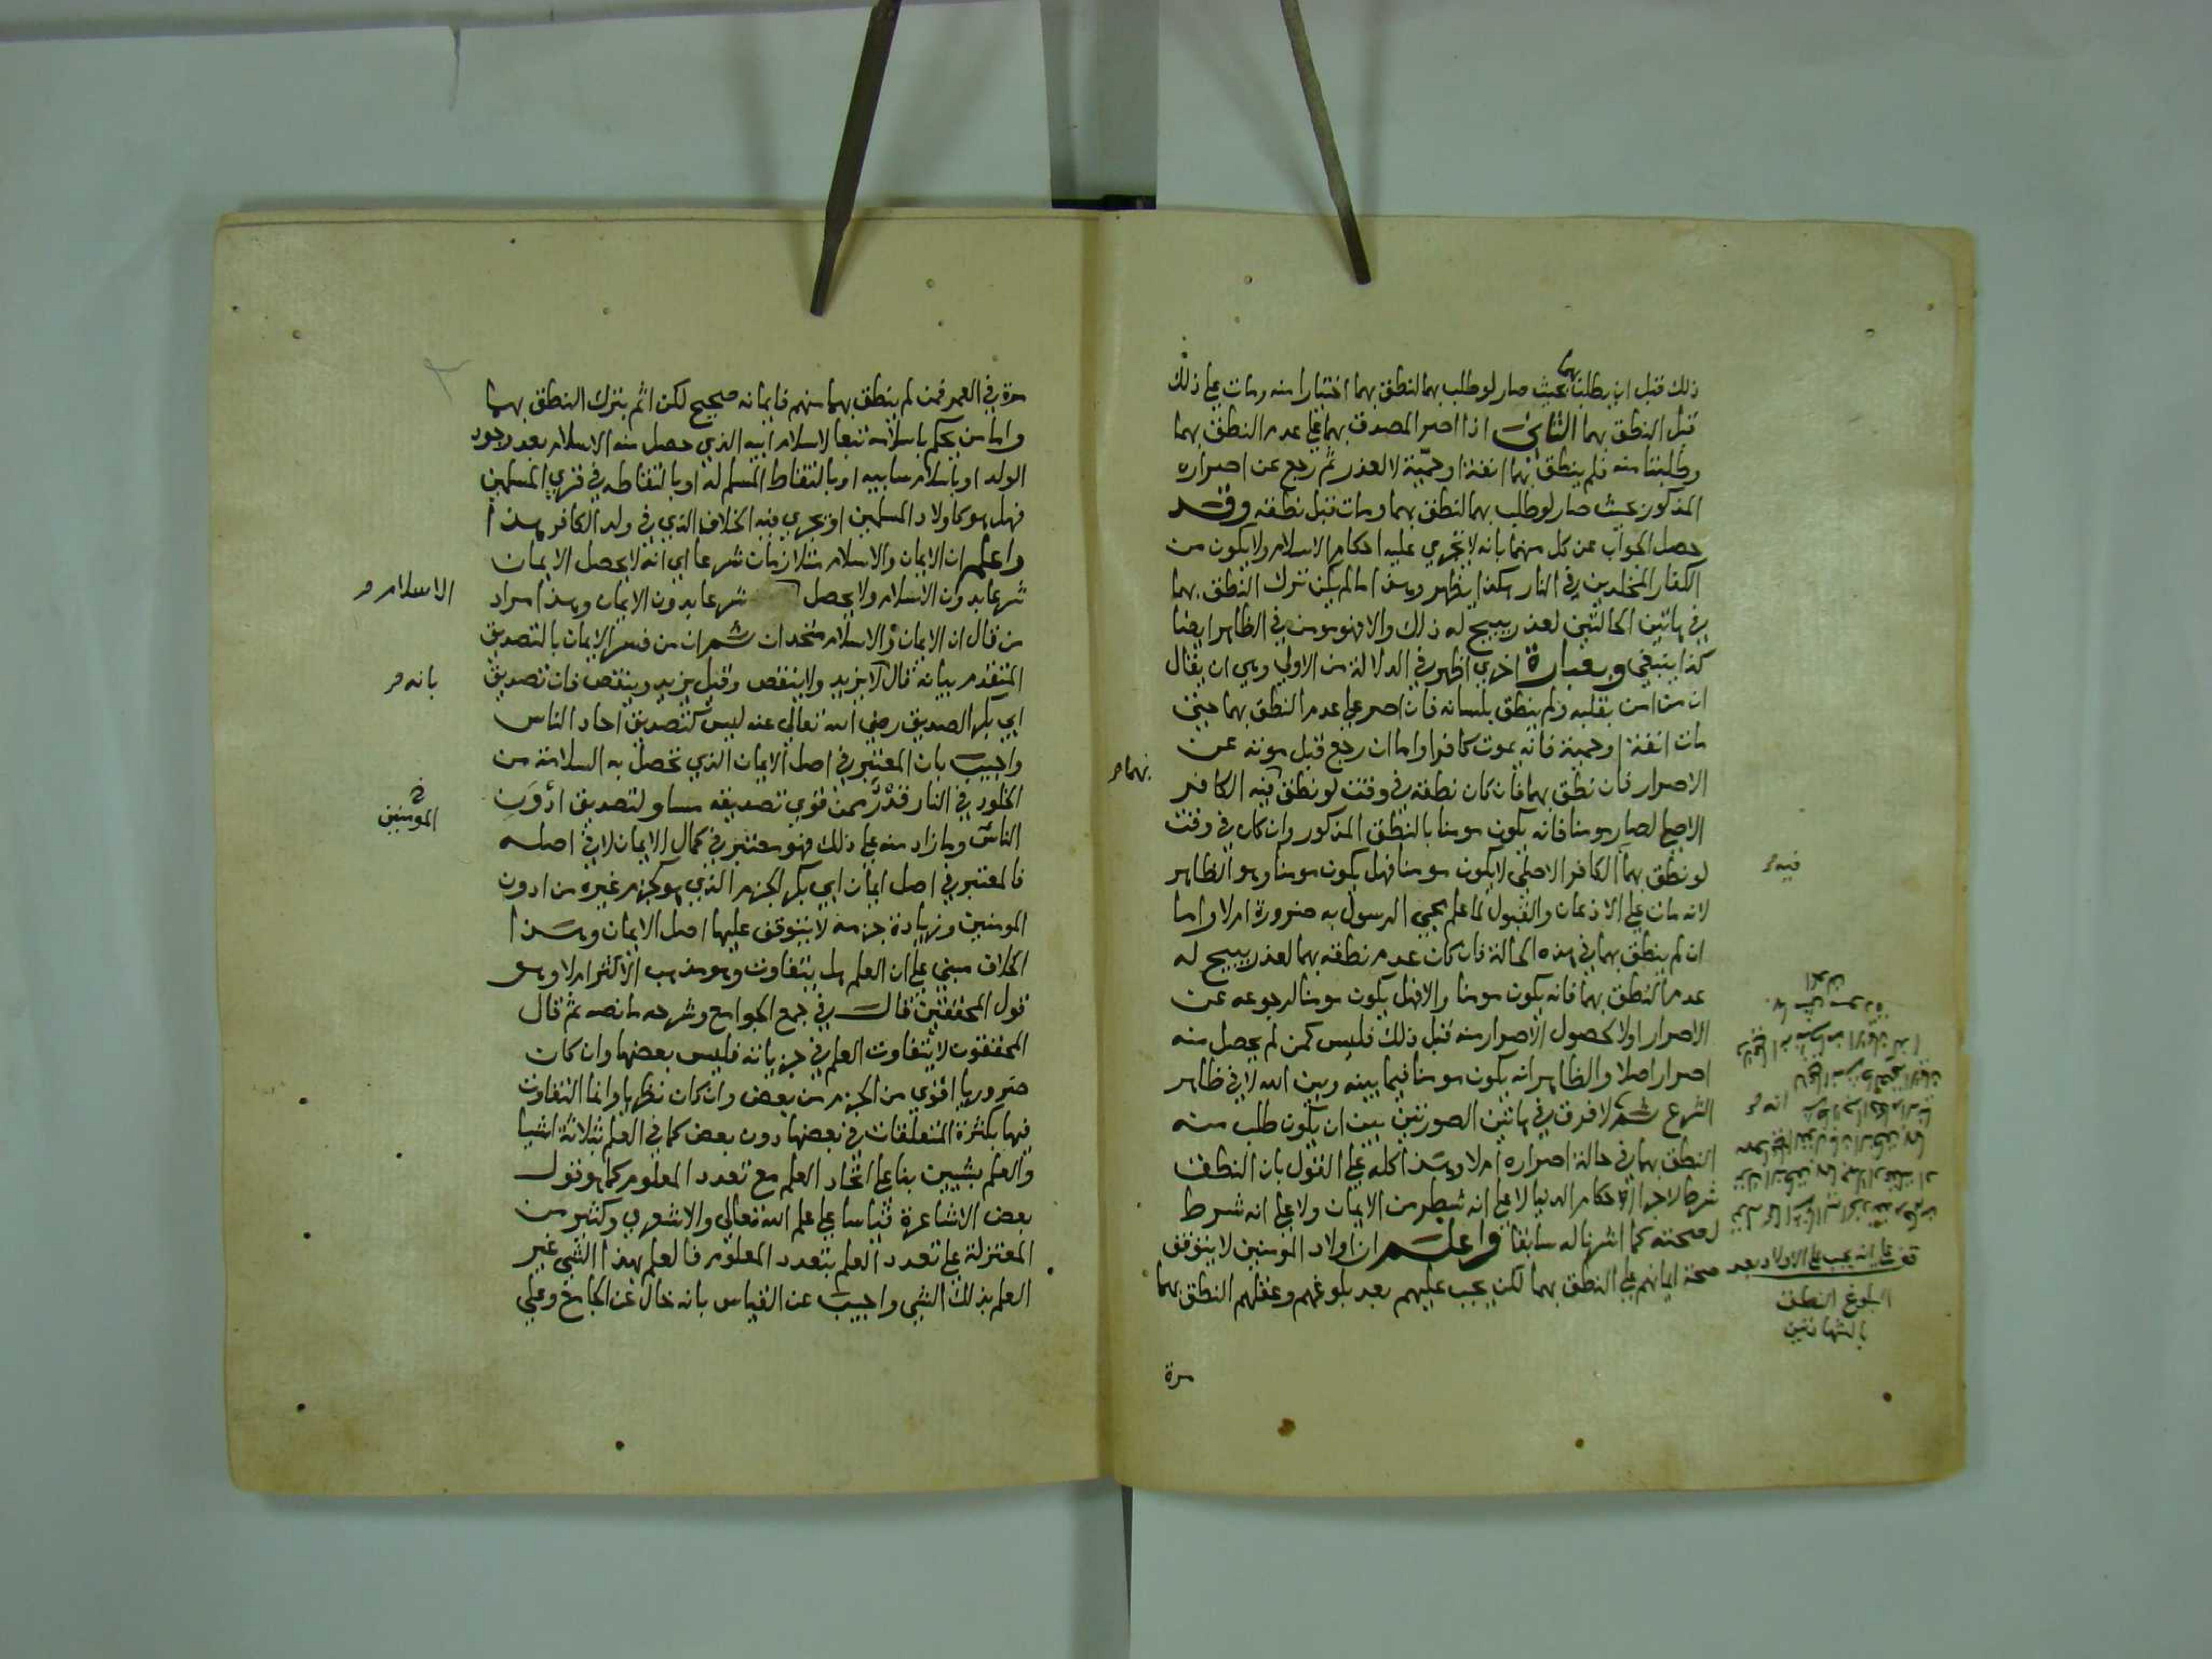 ذلك قبل ان يطلبنا بحيث صار لو طلب بهما لنطق بهما اختيارا منه ومات علي ذلك
بهما
قبل النطق بهما الثاني اذا اصر المصدق بهما علي عدم النطق بهما
وطلبنا منه فلم ينطق بهما انفة او حمية لا لعذر ثم رجع عن اصراره
المذكور بحيث صار لو طلب بهما لنطق بهما ومات قبل نطقه وقد
حصل الجواب عن كل منهما بانه لا تجري عليه احكام الاسلام ولا يكون من
الكفار المخلدين في النار هكذا يظهر وهذا ما لم يكن ترك النطق بهما
في هاتين الحالتين لعذر يبيح له ذلك والا فهو مومن في الظاهر ايضا
كذا ينبغي وبعبارة اخري اظهر في الدلالة من الاولي وهي ان يقال
ان من امن بقلبه ولم ينطق بلسانه فان اصر علي عدم النطق بهما حيث
مات انفة او حمية فانه يموت كافرا واما ان رجع قبل موته عن
الاصرار فان نطق بهما فان كان نطقه في وقت لو نطق فيه الكافر
بهما
الاصلي لصار مومنا فانه يكون مومنا بالنطق المذكور وان كان في وقت
لو نطق بهما الكافر الاصلي لا يكون مومنا فهل يكون مومنا وهو الظاهر
فيه
لانه مات علي الاذعان والقبول لما علم مجي الرسول به ضرورة ام لا واما
ان لم ينطق بهما في هذه الحالة فان كان عدم نطقه بهما لعذر يبيح له
عدم النطق بهما فانه يكون مومنا والا فهل يكون مومنا لرجوعه عن
الاصرار اولا لحصول الاصرار منه قبل ذلك فليس كمن لم يحصل منه
اصرار اصلا والظاهر انه يكون مومنا فيما بينه وبين الله لا في ظاهر
الشرع ثم لا فرق في هاتين الصورتين بين ان يكون طلب منه
النطق بهما في حالة اصراره ام لا وهذا كله علي القول بان النطق
شرط لاجراء احكام الدنيا لا علي انه شطر من الايمان ولا علي انه شرط
لصحته كما اشرنا له سابقا واعلم ان اولاد المومنين لا يتوقف
صحة ايمانهم علي النطق بهما لكن يجب عليهم بعد بلوغهم وعقلهم النطق بهما
قف علي انه يجب علي الاولاد بعد
البلوغ النطق
بالشهادتين
مرة
مرة في العمر فمن لم ينطق بهما منهم فايمانه صحيح لكن اثم بترك النطق بهما
واما من يحكم باسلامه تبعا لاسلام ابيه الذي حصل منه الاسلام بعد وجود
الولد او باسلام سابيه او بالتقاط المسلم له او بالتقاطه في قري المسلمين
فهل هو كاولاد المسلمين او يجري فيه الخلاف الذي في ولد الكافر هذا
واعلم ان الايمان والاسلام متلازمان شرعا اي انه لا يحصل الايمان
شرعا بدون الاسلام ولا يحصل شرعا بدون الايمان وهذا مراد
الاسلام
من قال ان الايمان والاسلام متحدان ثم ان من فسر الايمان بالتصديق
المتقدم بيانه قال لا يزيد ولا ينقص وقيل يزيد وينقص فان تصديق
بانه
ابي بكر الصديق رضي الله تعالي عنه ليس كتصديق احاد الناس
واجيب بان المعتبر في اصل الايمان الذي تحصل به السلامة من
الخلود في النار قدر من قوي تصديقه مساو لتصديق ادون
المومنين
الناس وما زاد منه علي ذلك فهو معتبر في كمال الايمان لا في اصله
فالمعتبر في اصل ايمان ابي بكر الجزم الذي هو كجزم غيره من ادون
المومنين وزيادة جزمه لا يتوقف عليها اصل الايمان وهذا
الخلاف مبني علي ان العلم هل يتفاوت وهو مذهب الاكثر ام لا وهو
قول المحققين قال في جمع الجوامع وشرحه ما نصه ثم قال
المحققون لا يتفاوت العلم في جزياته فليس بعضها وان كان
ضروريا اقوي من الجزم من بعض وان كان نظريا وانما التفاوت
فيها بكثرة المتعلقات في بعضها دون بعض كما في العلم بثلاثة اشيا
والعلم بشيين بنا علي اتحاد العلم مع تعدد المعلوم كما هو قول
بعض الاشاعرة قياسا علي علم الله تعالي والاشعري وكثير من
المعتزلة علي تعدد العلم بتعدد المعلوم فالعلم بهذا الشي غير
العلم بذلك الشي واجيب عن القياس بانه خال عن الجامع وعلي